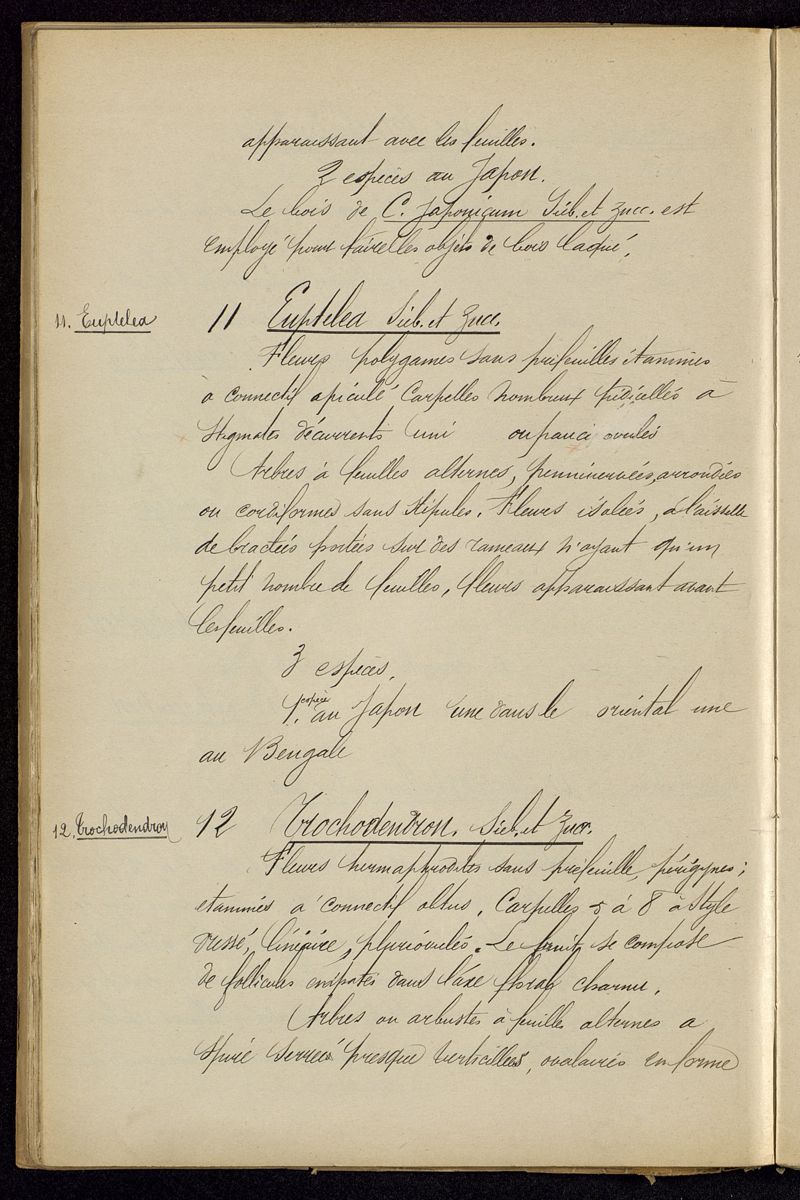 apparaissant avec les feuilles.
2 espèces au Japon.
Le bois de C. Japonicum Sieb. et Zucc. est
employé pour faire les objets de bois laqué.
11. Euptelea
11 Euptelea Sieb. et Zucc.
Fleurs polygames sans préfeuilles étamines
à connectif apiculé Carpelles nombreux pédicellés à
stigmates décurrents uni ou pauci ovulés
Arbres à feuilles alternes, penninervées, arrondies
ou cordiformes sans stipules. Fleurs isolées, à l'aisselle
de bractées portées sur des rameaux n'ayant qu'un
petit nombre de feuilles, fleurs apparaissant avant
les feuilles.
3 espèces.
1. espèce au Japon une dans le oriental une
au Bengale
12. Trochodendron
12 Trochodendron. Sieb. et Zucc.
Fleurs hermaphrodites sans préfeuille, périgynes;
étamines à connectif obtus. Carpelles 5 à 8 à style
dressé, linéaire, pluriovulés. Le fruit se compose
de follicules dans l'axe floral charnu.
Arbres ou arbustes à feuilles alternes a
serrée presque verticillées, ovalaires en forme